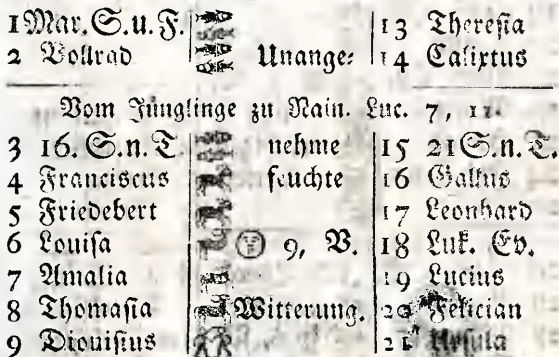 1 Mar. S. u. F. 13 Theresia
2 Vollrad Unange⸗ 14 Calixtus
Vom Jünglinge zu Nain. Luc. 7, 11.
3 16. S. n. T. nehme 15 21 S. n. T.
4 Franciscus feuchte 16 Gallus
5 Friedebert 17 Leonhard
6 Louisa 9, V. 18 Luk. Ev.
7 Amalia 19 Lucius
8 Thomasia Witterung. 20 Felician
9 Dionisius 21 Ursula